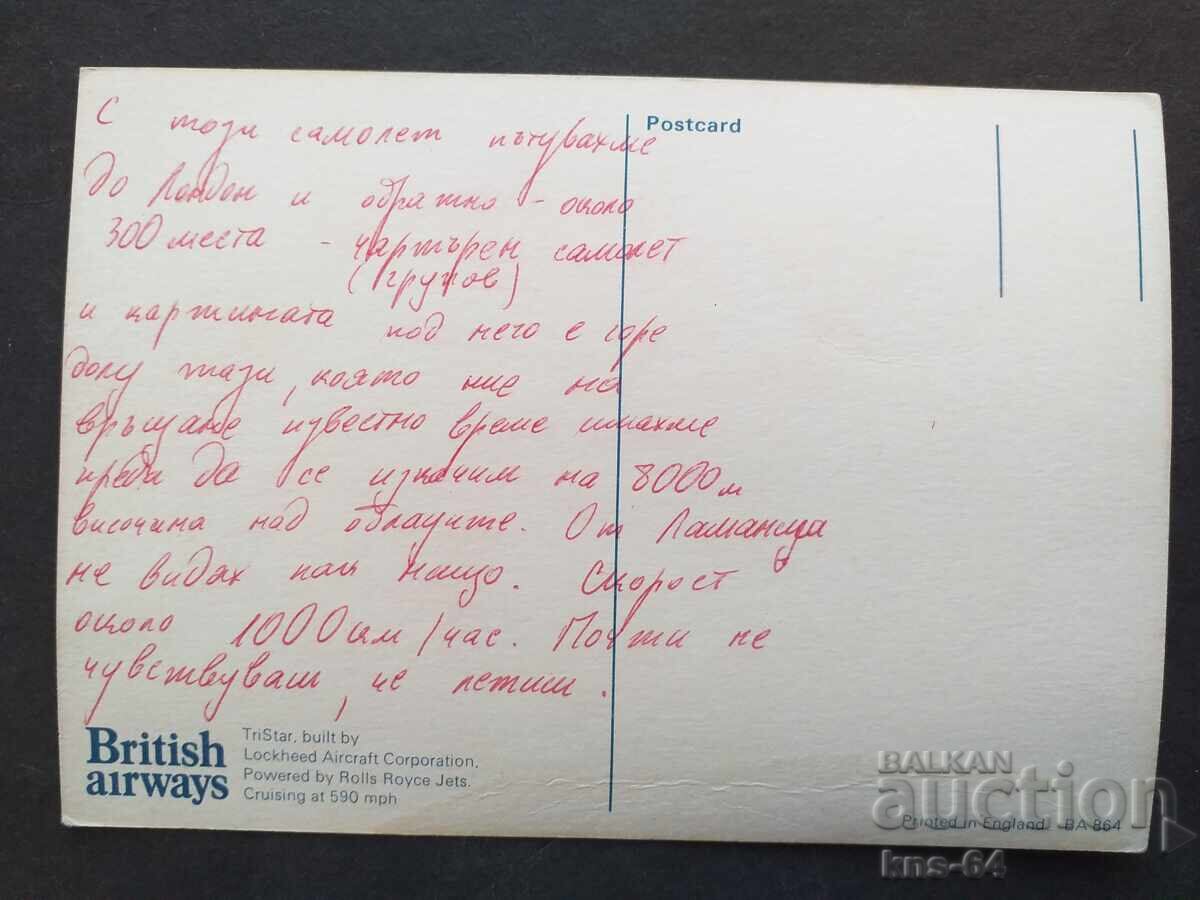 С този самолет пътувахме
до Лондон и обратно - около
300 места - чартърен самолет
(групов)
и картината под него е горе
долу тази, която ние на
връщане известно време имахме
преди да се изкачим на 8000 м
височина над облаците. От Ламанша
не видях почти нищо. Скорост
около 1000 км/час. Почти не
чувствуваш, че летиш.
Postcard
British
airways
TriStar, built by
Lockheed Aircraft Corporation,
Powered by Rolls Royce Jets.
Cruising at 590 mph
Printed in England BA 864
BALKAN
auction
kns-64